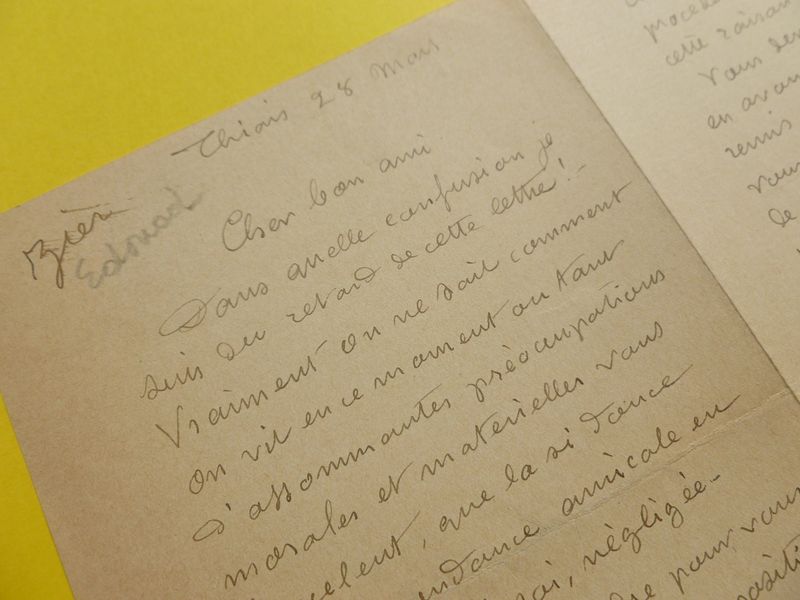 Thiais 28 Mars
Edouard
Cher bon ami
Dans quelle confusion je
suis du retard de cette lettre! -
Vraiment on ne sait comment
on vit en ce moment ou tant
d'assommantes préocupations
morales et materielles vous
celent, que la si douce
ondance amicale en
oi, négligée -
pour vous
positi
procéd
cette raison
Vous de
en avan
remis
vous
de